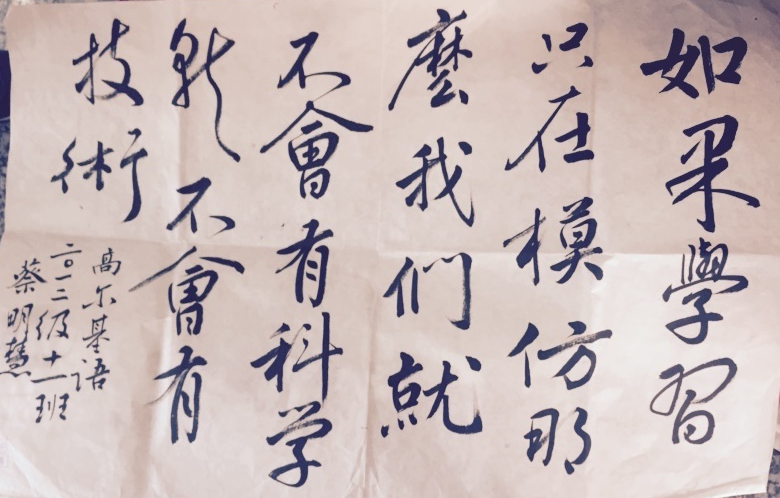 如果學習
只在模仿那
麼我們就
不會有科学
就不會有
技術
高尔基语
二〇二级十一班
蔡明慧